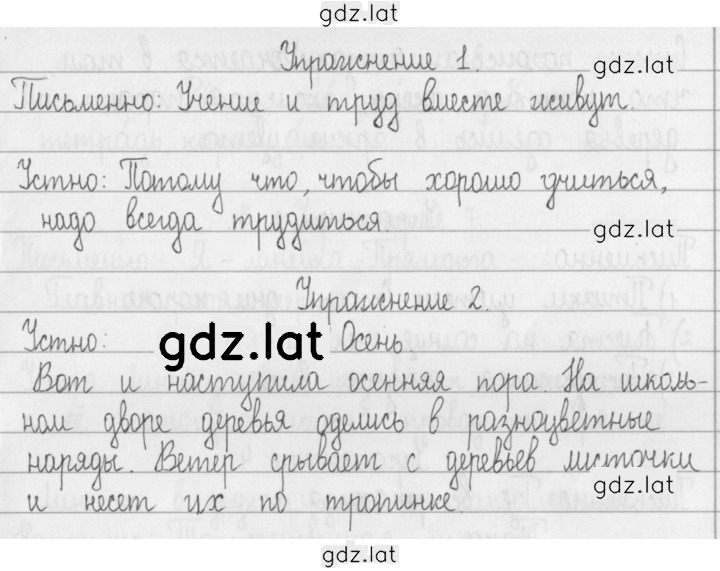 gdz.lat
Упражнение 1.
gdz.lat
Письменно: Учение и труд вместе живут.
Устно: Потому что, чтобы хорошо учиться,
надо всегда трудиться.
gdz.lat
Упражнение 2.
Устно: Осень.
gdz.lat
Вот и наступила осенняя пора. На школь-
ном дворе деревья оделись в разноцветные
наряды. Ветер срывает с деревьев листочки
gdz.lat
и несет их по тропинке.
gdz.lat